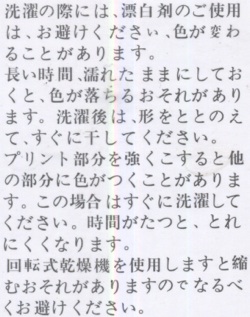 洗濯の際には、漂白剤のご使用
は、お避けください、色が変わ
ることがあります。
長い時間、濡れたままにしてお
くと、色が落ちるおそれがあり
ます。洗濯後は、形をととのえ
て、すぐに干してください。
プリント部分を強くこすると他
の部分に色がつくことがありま
す。この場合はすぐに洗濯して
ください。時間がたつと、とれ
にくくなります。
回転式乾燥機を使用しますと縮
むおそれがありますのでなるべ
くお避けください。